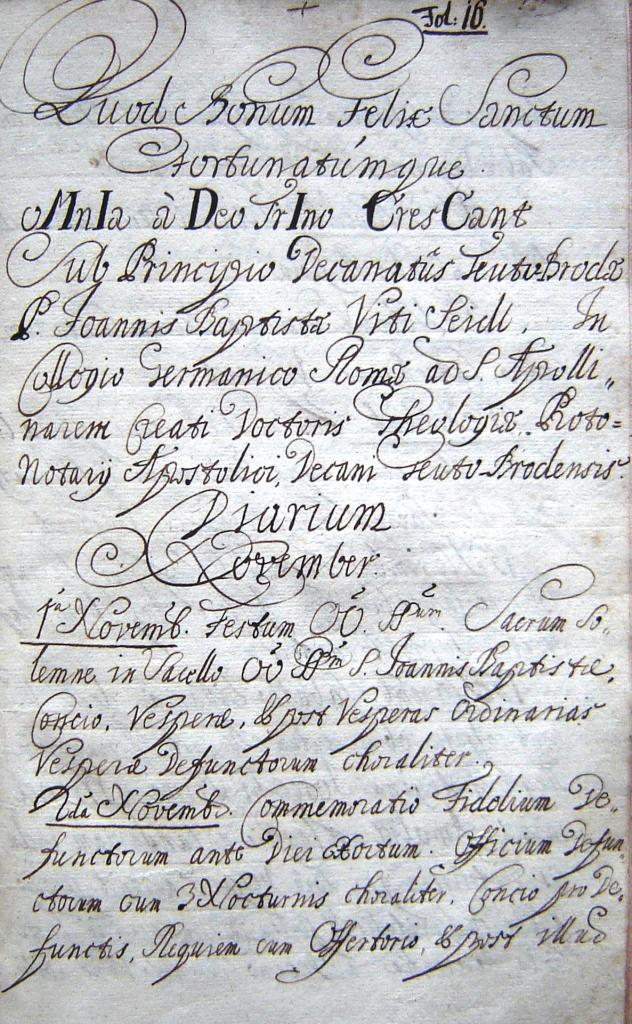 Fol: 16.
Quod Bonum Felix Sanctum
Fortunatúmque
oMnIa à Deo TrIno CresCant
Sub Principio Decanatûs Teuto-Brodæ
P. Joannis Baptistæ Viti Seidl, In
Collegio Germanico Romæ ad S. Apolli„
narem Creati Doctoris Theologiæ, Proto=
Notarij Apostolici, Decani Teuto-Brodensis.
Diarium
November
1ᵃ Novemb. Festum OO. SSum. Sacrum So„
lemne in Sacello OO SSm S. Joannis Baptistæ,
Concio, Vesperæ, & post Vesperas Ordinarias
Vesperæ Defunctorum choraliter.
2da Novemb. Commemoratio Fidelium De„
functorum ante Diei Exortum. Officium Defun„
ctorum cum 3 Nocturnis choraliter, Concio pro De„
functis, Requiem cum Offertorio, & post illud